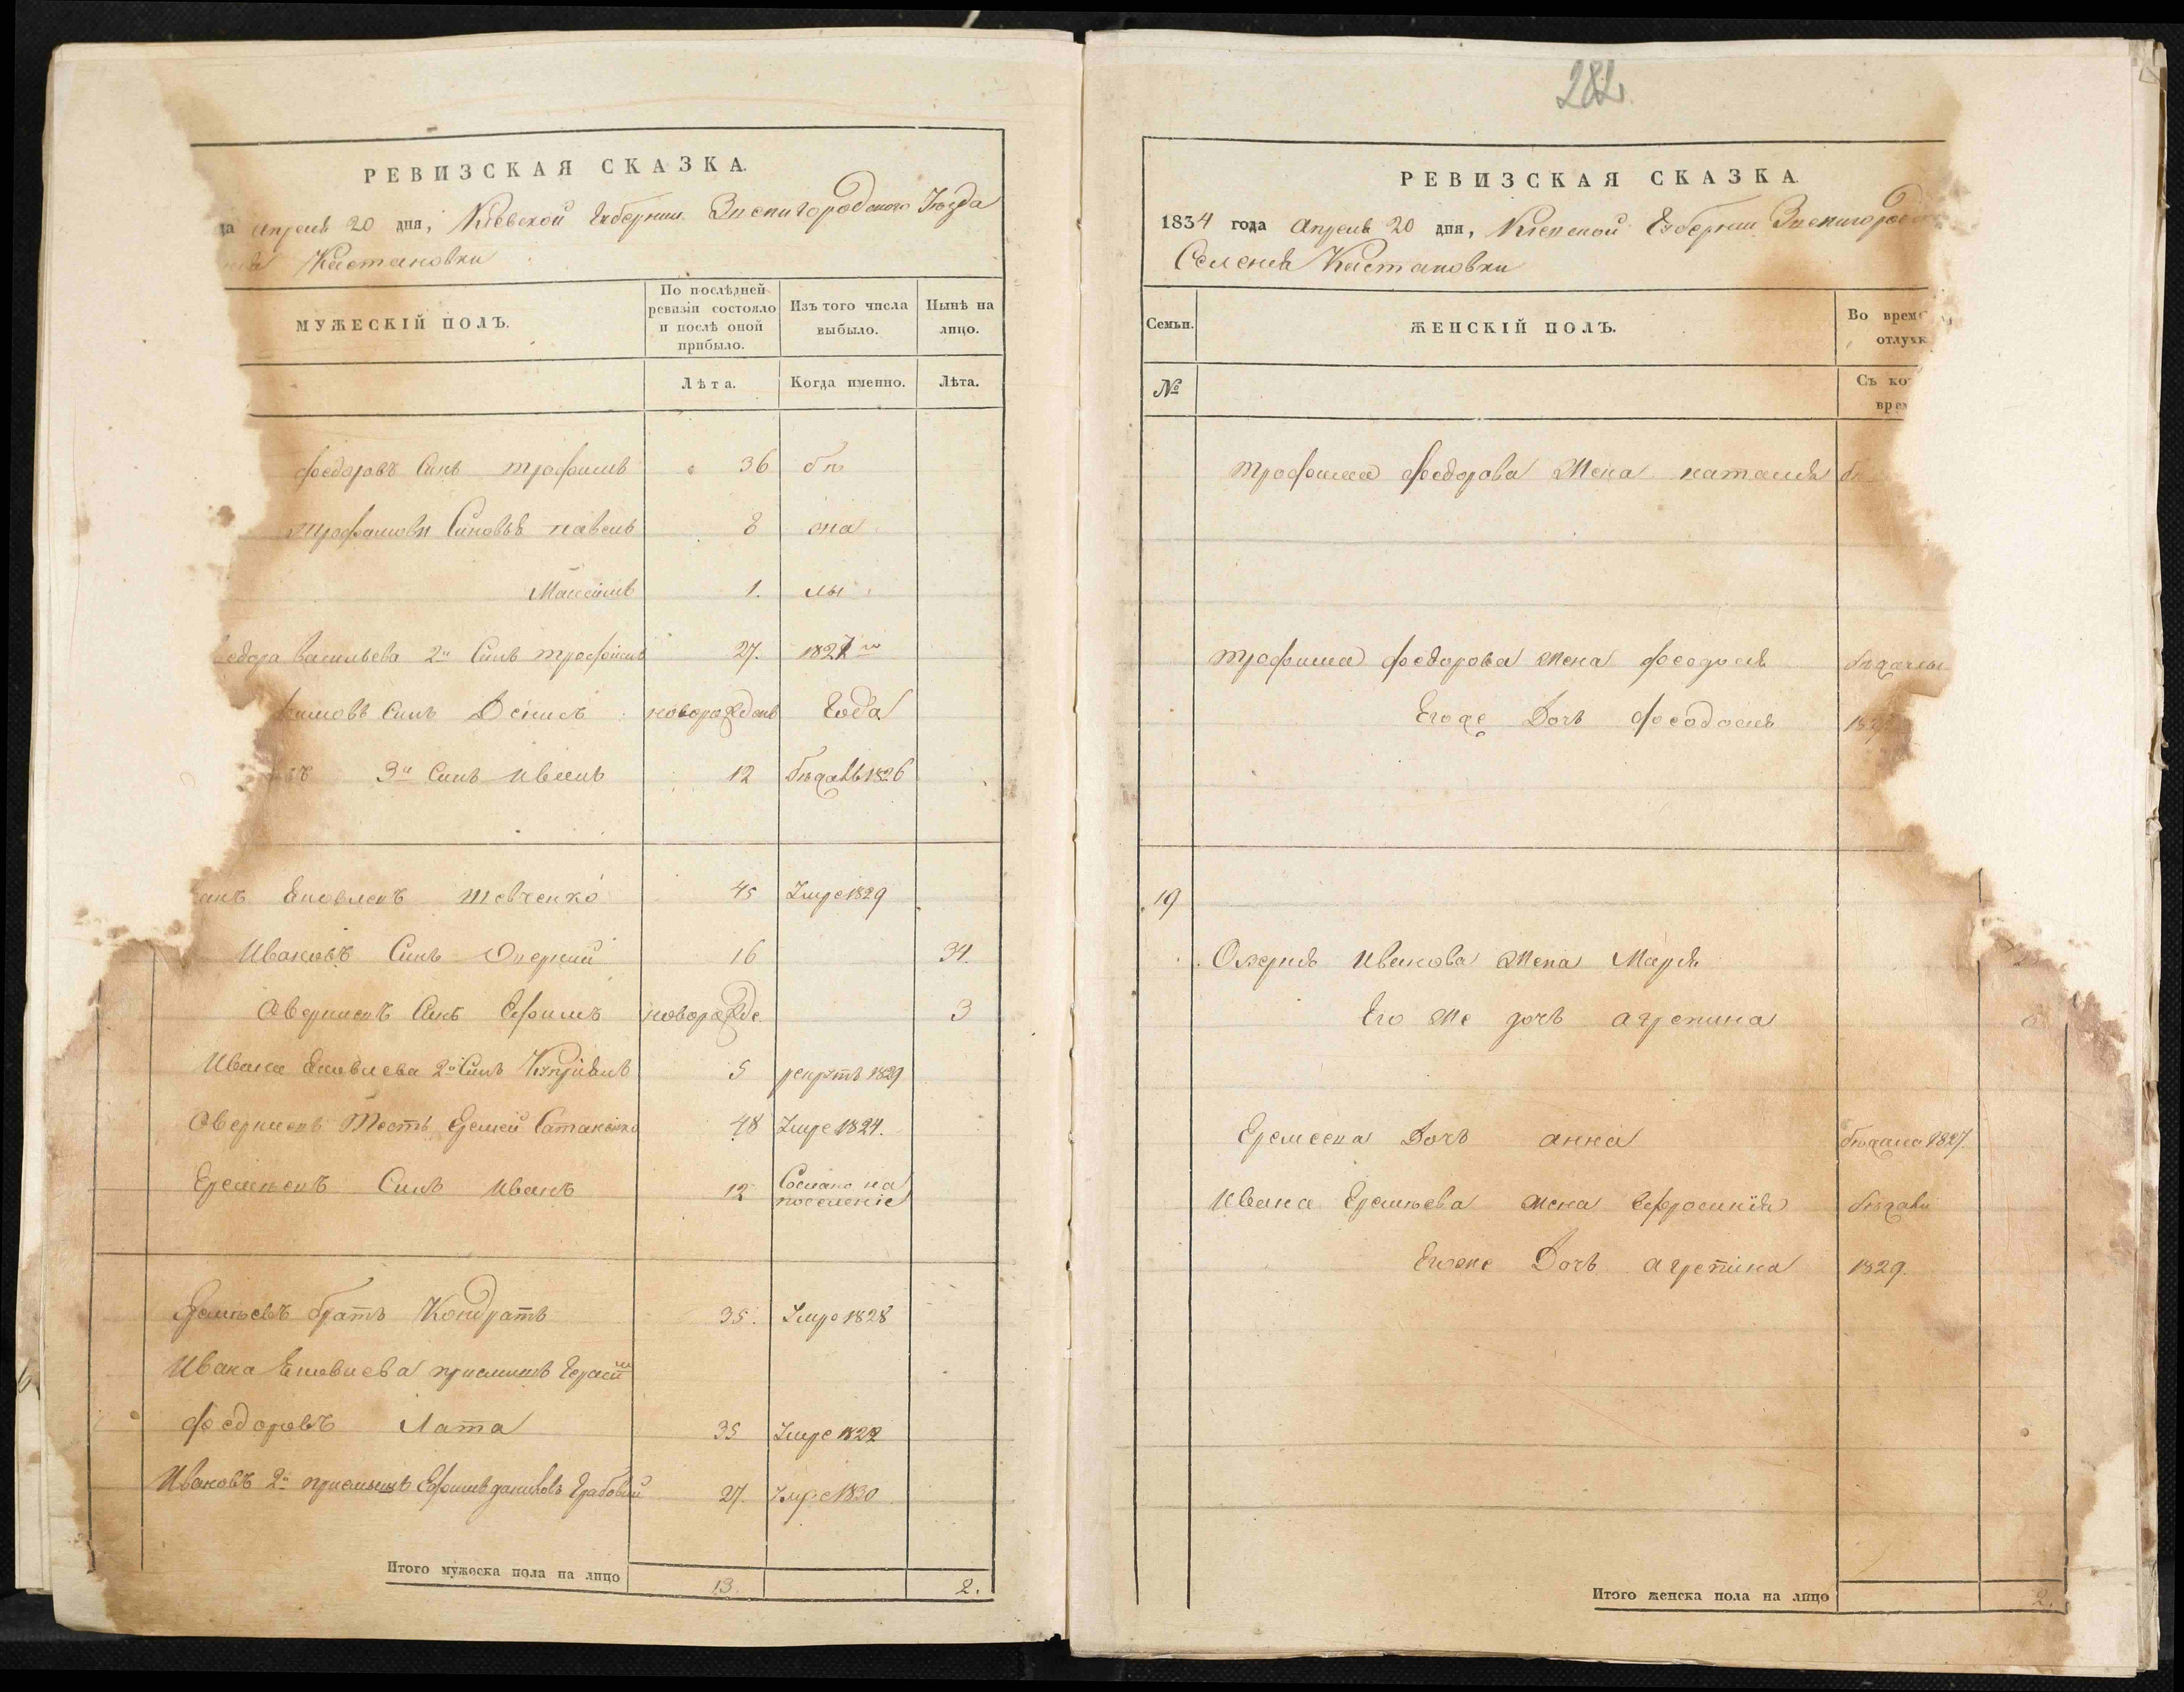 282.
РЕВИЗСКАЯ СКАЗКА.
да апреля 20 дня, Кіевской Губерніи Звенигородского Уѣзда
Кастановки
МУЖЕСКІЙ ПОЛЪ.
По послѣдней ревизіи состояло и послѣ оной прибыло.
Изъ того числа выбыло.
Нынѣ на лицо.
Лѣта.
Когда именно.
Лѣта.
федоровъ Синъ трофимъ 36 бѣ
трофимови Синовья павелъ 8 жа
Максимъ 1. лы
едора васильева 2й Синъ трофимъ 27. 1827го
фимовъ синъ Денисъ новорожденъ Года
въ 3й Синъ иванъ 12 бѣжалъ 1826
анъ Яковлевъ шевченко 45 Умре 1829
Ивановъ Синъ Оверкий 16 34.
Оверкиевъ Синъ Ефимъ новорожде. 3
Ивана Яковлева 2й Синъ Купріянъ 5 рекрутъ 1829
Оверкиевъ Тесть Еремей 48 Умре 1824.
Еремѣевъ Синъ иванъ 12 Сослано на поселеніе
Еремѣевъ братъ Кондратъ 35. Умре 1828
Ивана Яковлева приемишъ Герасим
федоровъ Лата 35 Умре 1822
Ивановъ 2й приемишъ Ефимъ даниловъ Грабовий 27. Умре 1830
Итого мужеска пола на лицо 13. 2.
РЕВИЗСКАЯ СКАЗКА.
1834 года апреля 20 дня, Кіевской Губерніи Звенигородск
Селенія Кастановки
Семьи.
ЖЕНСКІЙ ПОЛЪ.
Во врем
отлучк
№
Съ ко
врем
трофима федорова жена наталия бѣ
трофима федорова жена феодосия бѣжали
Егоже Дочь феодосия 182
19
Оверкия иванова жена Мария
Его же дочь агрепина
Еремеева Дочь анна бѣжала 1827.
Ивана Еремѣева жена Ефросинія бѣжали
Егоже Дочь агрепина 1829.
Итого женска пола на лицо 2.